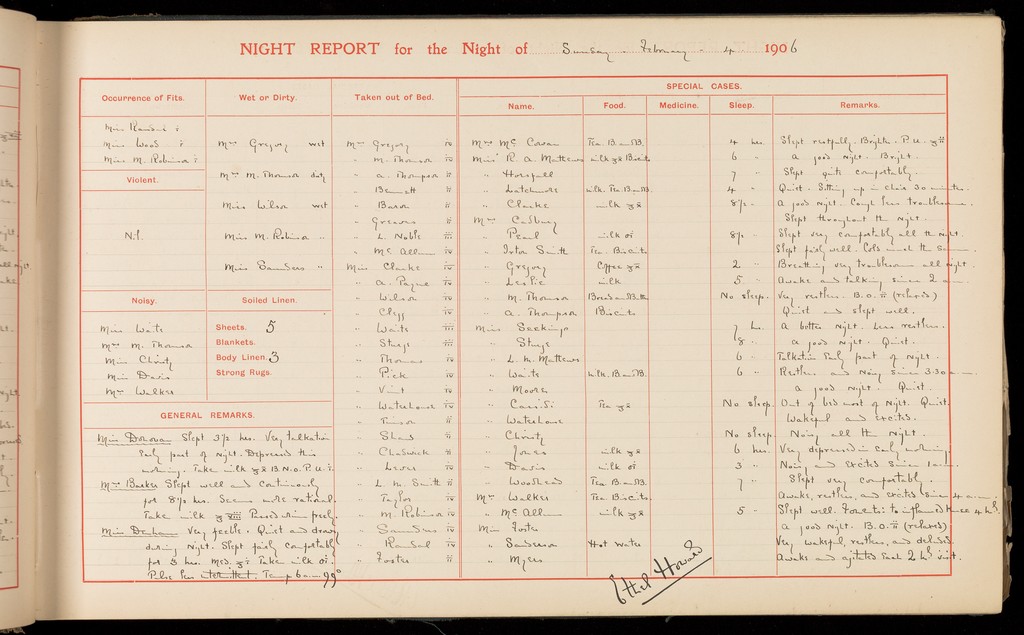 NIGHT REPORT for the Night of Sunday. February. 4 1906
Occurrence of Fits.
Wet or Dirty.
Taken out of Bed.
SPECIAL CASES.
Name.
Food.
Medicine.
Sleep.
Remarks.
Miss Wood
Miss M. Robinson
Violent.
Nil.
Noisy.
Miss Waits
Mrs M. Thomson
Miss Christy
Miss Davis
Mrs Walker
Mrs Gregory wet
Mrs M. Thomson dirty
Miss Wilson wet
Miss M. Robinson "
Miss Saunders "
Soiled Linen.
Sheets. 5
Blankets.
Body Linen. 3
Strong Rugs.
Mrs Gregory iv
" M. Thomson iv
" A. Thompson ii
" Bennett ii
" Baron ii
" Greaves ii
" L. Noble iii
" McAllum iv
Miss Clarke iv
" A. Payne iv
" Wilson iv
" Clegg iv
" Waits iii
" Sturge iii
" Thomas iv
" Pick iv
" Vint iv
" Waterhouse iv
" Shaw ii
" Chadwick ii
" L. M. Smith ii
" Taylor iv
" M. Robinson iv
" Saunders iv
" Foster ii
GENERAL REMARKS.
Miss Donovan Slept 3½ hrs. Very talkative
early part of night. Depressed this
morning. Take milk
Mrs Barker Slept well and continuously
for 8½ hrs. Seems more rational.
Take milk Passed urine freely.
Miss Denham Very feeble. Quiet and drowsy
during night. Slept fairly comfortably
for 5 hrs. Med. Take milk
Pulse less intermittent. Temp 6 a.m 99°
Mrs McCowan Tea. B. and B. 4 hrs. Slept restfully. Brighter. P.U.
Miss R. A. Mathews milk Biscuits 6 " A good night. Bright.
" Horsfall 7 " Slept quite comfortably.
" Latchmore milk. Tea. B. and B. 4 " Quiet. Sitting up in chair 30 minutes.
" Clarke milk 8½ " A good night. Cough less troublesome.
Mrs Cadbury Slept throughout the night.
" Pearl milk 8½ " Slept very comfortably all the night.
" Smith Tea. Biscuits Slept fairly well. Cold much the same.
" Gregory Coffee 2 " Breathing very troublesome all night.
" Leslie milk 5 " Awake and talking since 2 a.m.
" M. Thomson Bread and Butter No sleep. Very restless. B.O. ii (relaxed)
" A. Thompson Biscuits Quiet and slept well.
Miss Seekings 7 hrs. A better night. Less restless.
" Sturge 8 " A good night. Quiet.
" L. M. Mathews 6 " Talkative early part of night.
" Waits milk. B. and B. 6 " Restless and noisy since 3.30 a.m.
" Moore A good night. Quiet.
" Tea No sleep. Out of bed most of night. Quiet.
" Waterhouse Wakeful and excited.
" Christy No sleep. Noisy all the night.
" Jones milk 6 hrs. Very depressed in early morning.
" Davis milk 3 " Noisy and excited since 1 a.m.
" Woodhead Tea. B. and B. 7 " Slept very comfortably.
Mrs Walker Tea. Biscuits. Awake, restless, and excited since 4 a.m.
" McAllum milk 5 " Slept well. to inflamed knee 4 hrly.
Miss Foster A good night. B.O. ii (relaxed)
" Sanderson Hot water Very wakeful, restless, and deluded.
" Myers Awake and agitated each 2 hr visit.
Ethel Howard